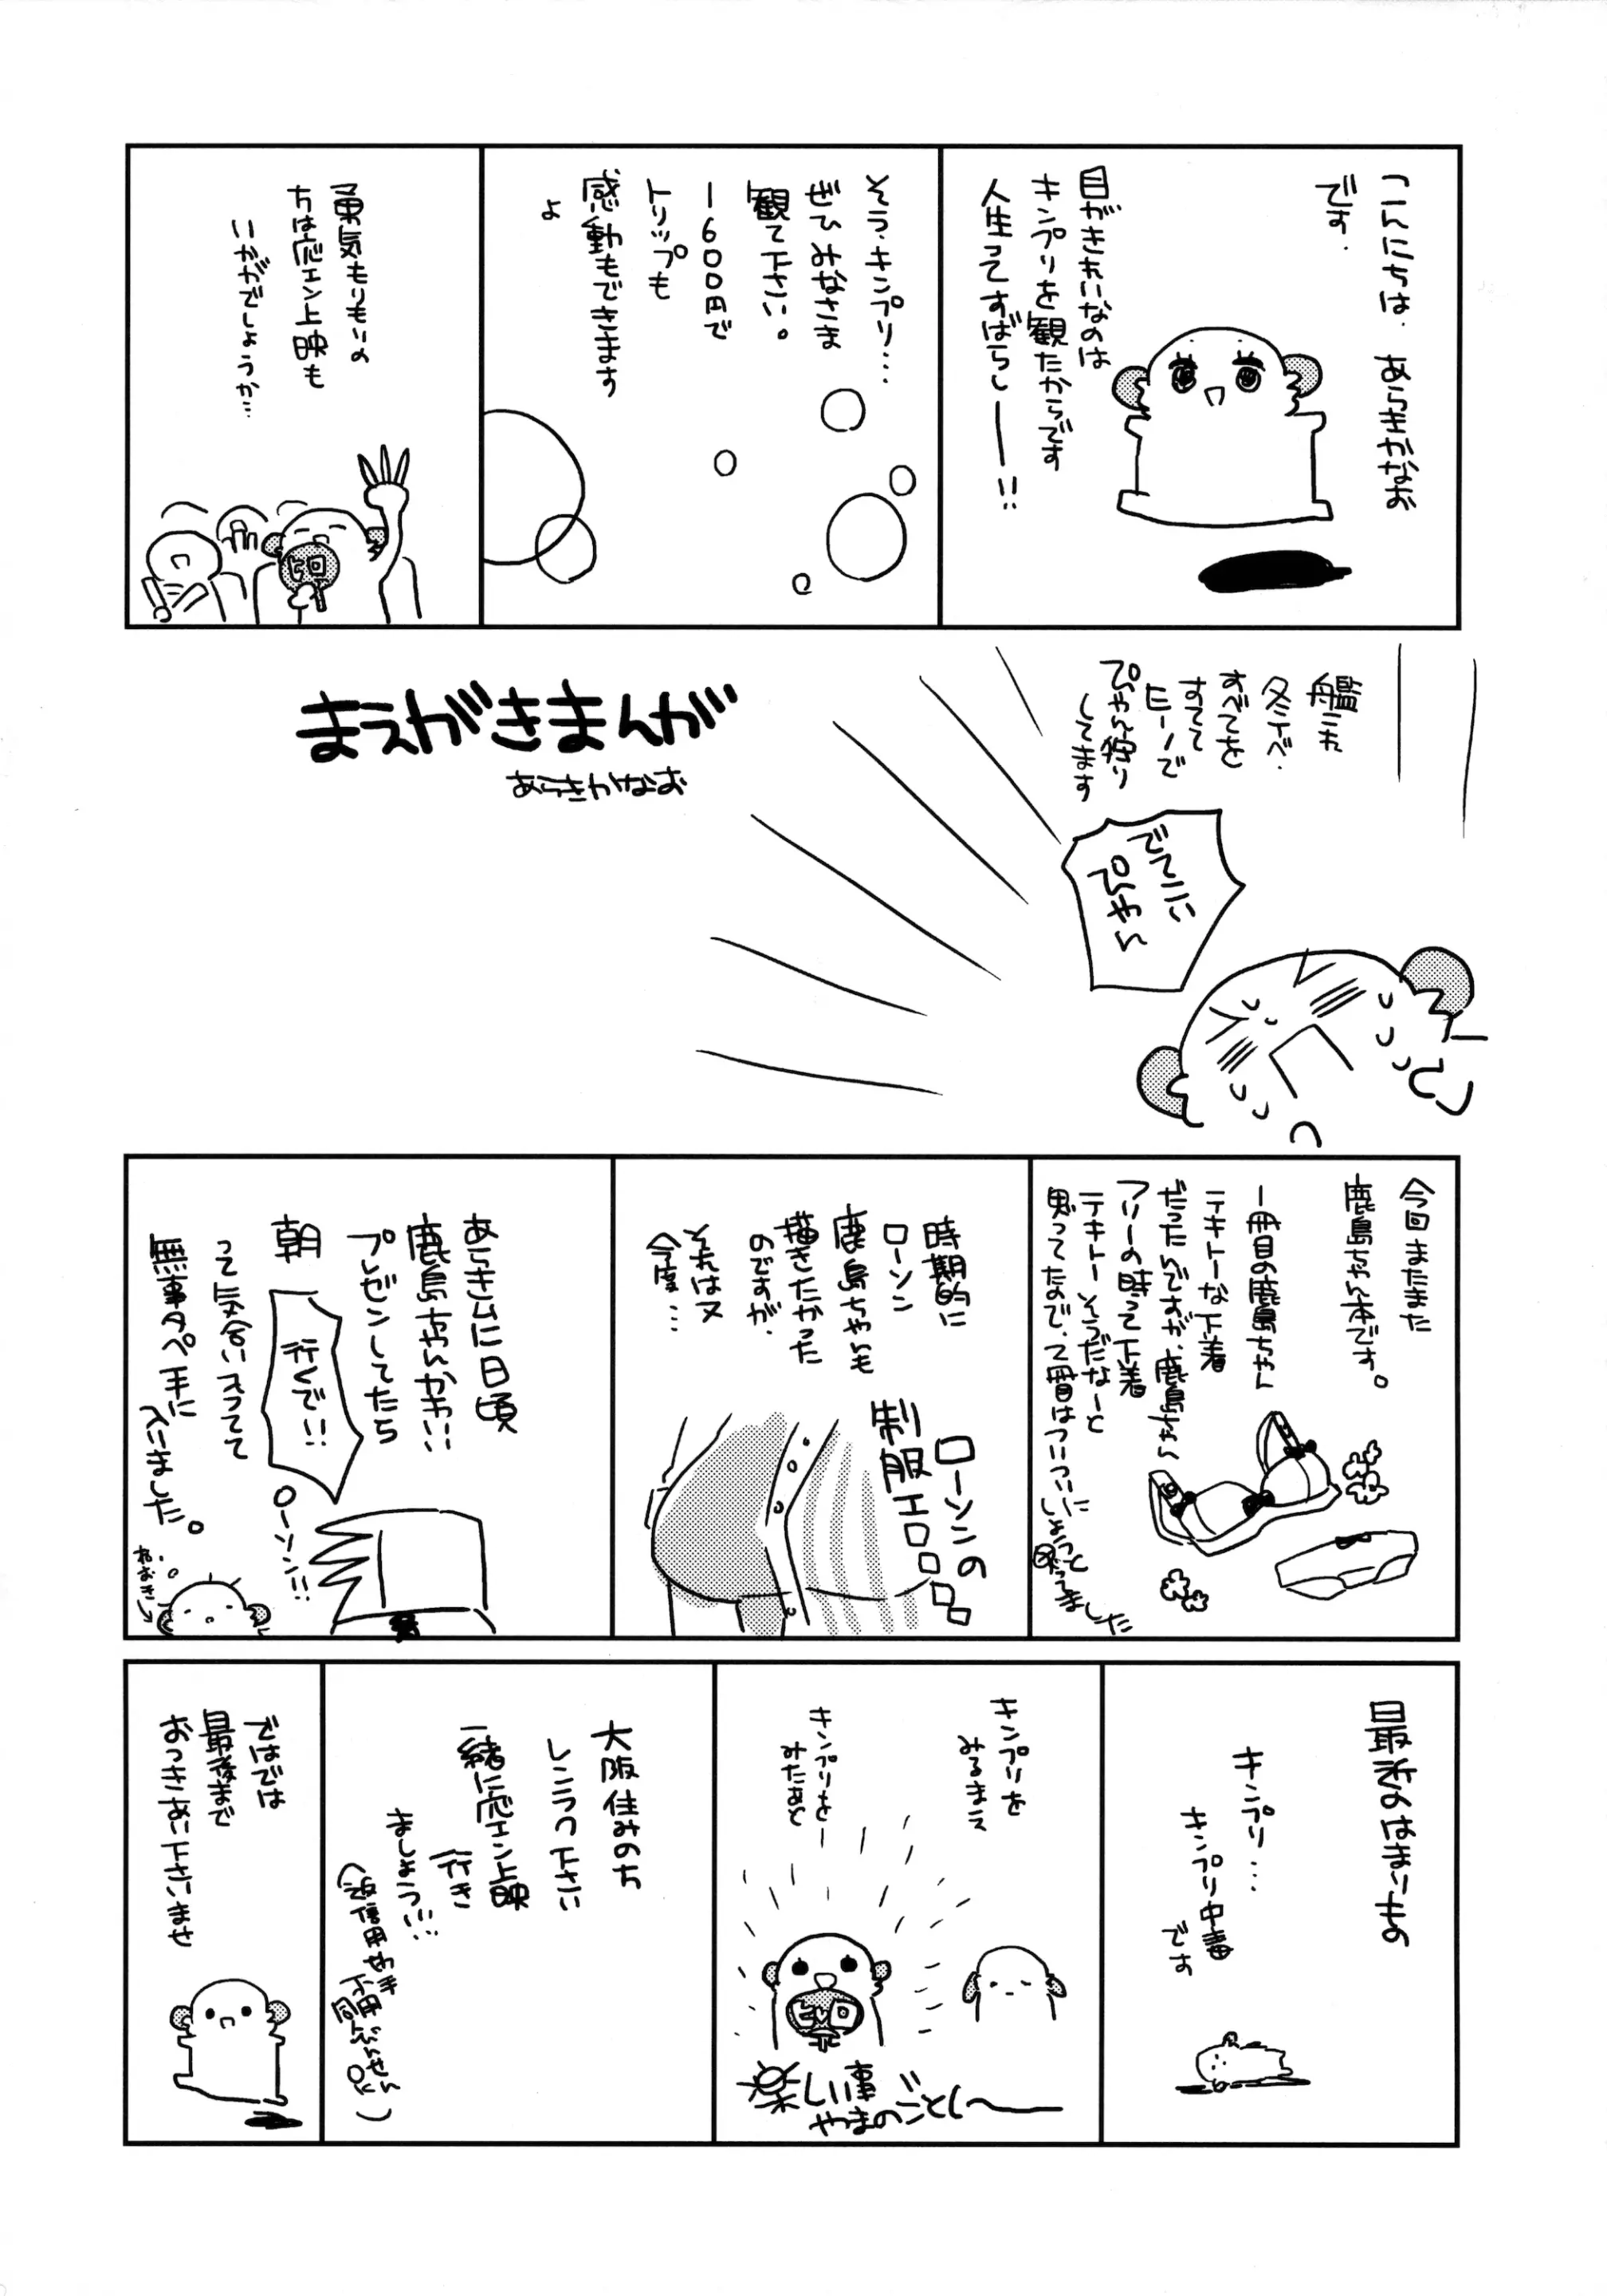 こんにちは. あらきかなお
です.
目がきれいなのは
キンプリを観たからです
人生ってすばらしーー!!
そう、キンプリ…
ぜひみなさま
観て下さい。
1600円で
トリップも
感動もできます
よ
勇気もりもりの
方は応エン上映も
いかがでしょうか…
ヒロ
まえがきまんが
あらきかなお
艦これ
冬イベ.
すべてを
すてて
ヒーノで
ぴゃん狩り
してます
でてこい
ぴゃん
今回またまた
鹿島ちゃん本です。
一冊目の鹿島ちゃん
テキトーな下着
だったんですが、鹿島ちゃん
フリーの時って下着
テキトーそうだなーと
思ってたので、2冊目はついついに
しようっと
時期的に
ローソン
鹿島ちゃんも
描きたかった
のですが.
それは又
今度…
ローソンの
制服エロロロロ
あらきムに日頃
鹿島ちゃんかわいい
プレゼンしてたら
朝
行くで!!
ローソン!!
って気合い入ってて
無事タペ手に
入りました。
ねおき
最近のはまりもの
キンプリ…
キンプリ中毒
です
キンプリを
みるまえ
キンプリを
みたあと
ヒロ
楽しい事
やまのごとし〜
大阪住みの方
レンラク下さい
一緒に応エン上映
行き
ましょう!!!
ではでは
最後まで
おつきあい下さいませ